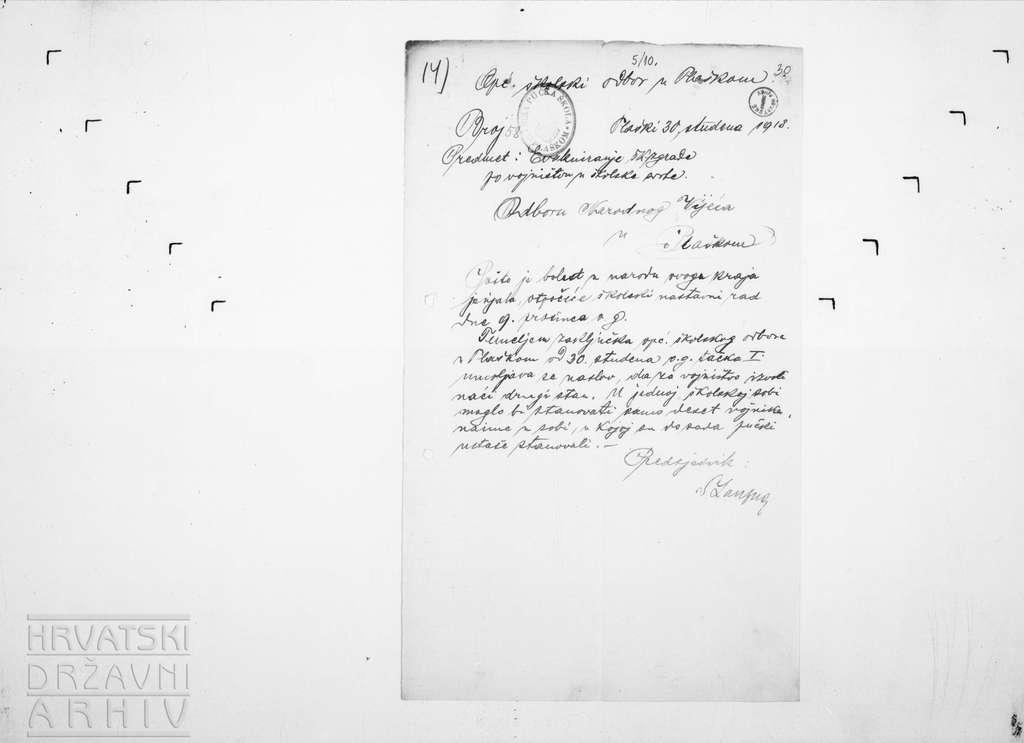 5/10.
14)
38
Opć. školski odbor u Plaškom
PUČKA ŠKOLA
PLAŠKOM
Broj 58
Plaški 30. studena 1918.
Predmet: Evakuiranje šk. zgrade
po vojništvu u školske svrhe.
Odboru Narodnog Vijeća
u Plaškom
Pošto je bolest u narodu ovoga kraja
jenjala, otpočiće školski nastavni rad
dne 9. prosinca o. g.
Temeljem zaključka opć. školskog odbora
u Plaškom od 30. studena o.g. tačka I.
umoljava se naslov, da za vojništvo izvoli
naći drugi stan. U jednoj školskoj sobi
moglo bi stanovati samo deset vojnika,
naime u sobi, u kojoj su do sada pučki
ustaše stanovali. —
Predsjednik:
HRVATSKI
DRŽAVNI
ARHIV